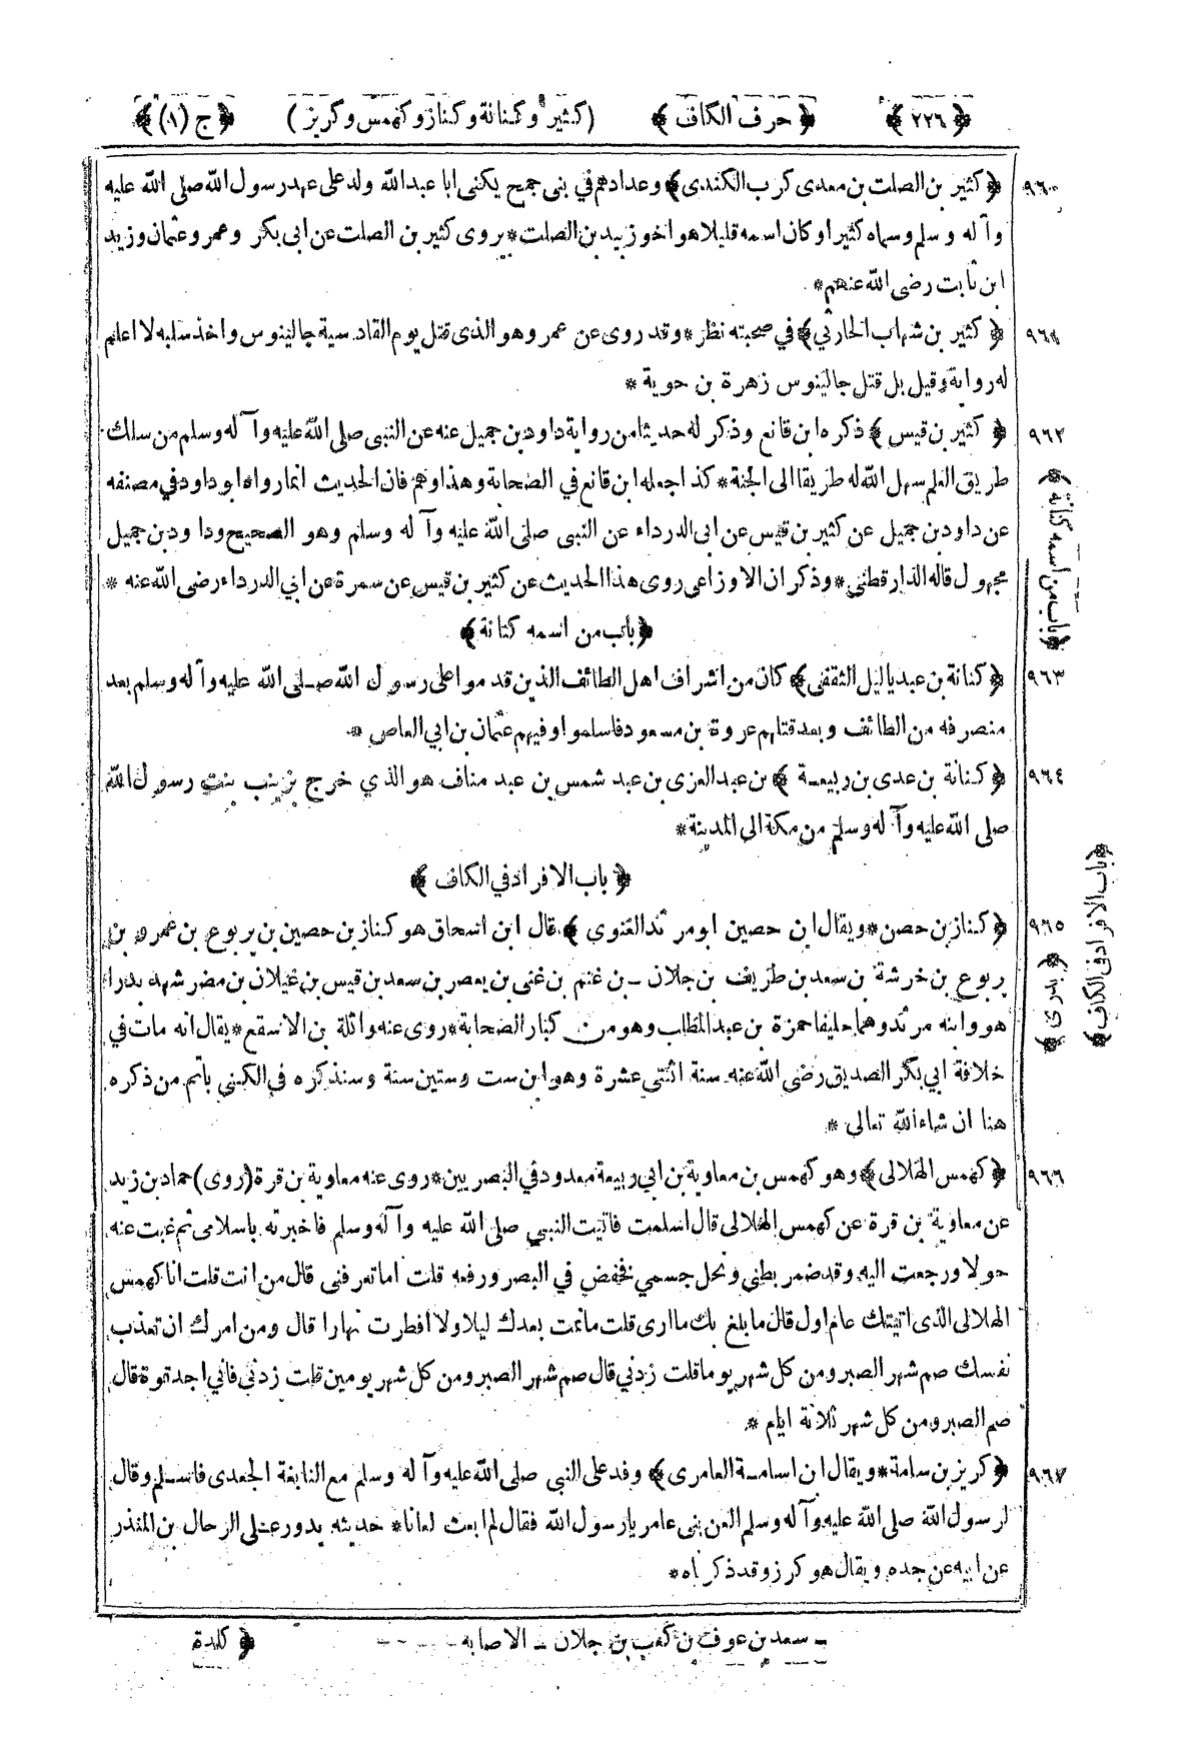 ﴿٢٢٦﴾ ﴿حرف الكاف﴾ (كثير وكنانة وكناز وكهمس وكريز) ﴿ج (١)﴾
٩٦٠ ﴿كثير بن الصلت بن معدى كرب الكندى﴾ وعدادهم في بنى جمح يكنى ابا عبدالله ولد على عهد رسول الله صلى الله عليه
وآله وسلم وسماه كثيرا وكان اسمه قليلا هو اخو زبيد بن الصلت* يروى كثير بن الصلت عن ابى بكر وعمر وعثمان وزيد
ابن ثابت رضى الله عنهم*
٩٦١ ﴿كثير بن شهاب الحارثي﴾ في صحبته نظر* وقد روى عن عمر وهو الذى قتل يوم القادسية جالينوس واخذ سلبه لا اعلم
له رواية وقيل بل قتل جالينوس زهرة بن حوية*
٩٦٢ ﴿كثير بن قيس﴾ ذكره ابن قانع وذكر له حديثا من رواية داود بن جميل عنه عن النبى صلى الله عليه وآله وسلم من سلك
طريق العلم سهل الله له طريقا الى الجنة* كذا جعله ابن قانع في الصحابة وهذا وهم فان الحديث انما رواه ابو داود في مصنفه
عن داود بن جميل عن كثير بن قيس عن ابى الدرداء عن النبى صلى الله عليه وآله وسلم وهو الصحيح وداود بن جميل
مجهول قاله الدارقطنى* وذكر ان الاوزاعى روى هذا الحديث عن كثير بن قيس عن سمرة عن ابي الدرداء رضى الله عنه*
﴿باب من اسمه كنانة﴾
﴿باب من اسمه كنانة﴾
٩٦٣ ﴿كنانة بن عبد ياليل الثقفى﴾ كان من اشراف اهل الطائف الذين قدموا على رسول الله صلى الله عليه وآله وسلم بعد
منصرفه من الطائف وبعد قتلهم عروة بن مسعود فاسلموا وفيهم عثمان بن ابي العاص*
٩٦٤ ﴿كنانة بن عدى بن ربيعة﴾ بن عبد العزى بن عبد شمس بن عبد مناف هو الذي خرج بزينب بنت رسول الله
صلى الله عليه وآله وسلم من مكة الى المدينة*
﴿باب الافراد في الكاف﴾
﴿باب الافراد في الكاف﴾
٩٦٥ ﴿كناز بن حصن* ويقال ابن حصين ابو مرثد الغنوي﴾ قال ابن اسحاق هو كناز بن حصين بن يربوع بن عمرو بن
يربوع بن خرشة بن سعد بن طريف بن جلان – بن غنم بن غنى بن يعصر بن سعد بن قيس بن غيلان بن مضر شهد بدرا
﴿بدرى﴾
هو وابنه مرثد وهما حليفا حمزة بن عبد المطلب وهو من كبار الصحابة* روى عنه واثلة بن الاسقع* يقال انه مات في
خلافة ابي بكر الصديق رضى الله عنه سنة اثنتى عشرة وهو ابن ست وستين سنة وسنذكره في الكنى باتم من ذكره
هنا ان شاء الله تعالى*
٩٦٦ ﴿كهمس الهلالى﴾ وهو كهمس بن معاوية بن ابي ربيعة معدود في البصريين* روى عنه معاوية بن قرة (روى) حماد بن زيد
عن معاوية بن قرة عن كهمس الهلالى قال اسلمت فاتيت النبى صلى الله عليه وآله وسلم فاخبرته باسلامى ثم غبت عنه
حولا ورجعت اليه وقد ضمر بطنى ونحل جسمي فخفض في البصر ورفعه قلت اما تعرفنى قال من انت قلت انا كهمس
الهلالى الذى اتيتك عام اول قال ما بلغ بك ما ارى قلت ما نمت بعدك ليلا ولا افطرت نهارا قال ومن امرك ان تعذب
نفسك صم شهر الصبر ومن كل شهر يوما قلت زدني قال صم شهر الصبر ومن كل شهر يومين قلت زدنى فاني اجد قوة قال
صم الصبر ومن كل شهر ثلاثة ايام*
٩٦٧ ﴿كريز بن سامة* ويقال ابن اسامة العامرى﴾ وفد على النبى صلى الله عليه وآله وسلم مع النابغة الجعدى فاسلم وقال
لرسول الله صلى الله عليه وآله وسلم العن بنى عامر يا رسول الله فقال لم ابعث لعانا* حديثه يدور على الرحال بن المنذر
عن ابيه عن جده ويقال هو كرز وقد ذكرناه*
– سعد بن عوف بن كعب بن جلان – الاصابه
﴿كلدة